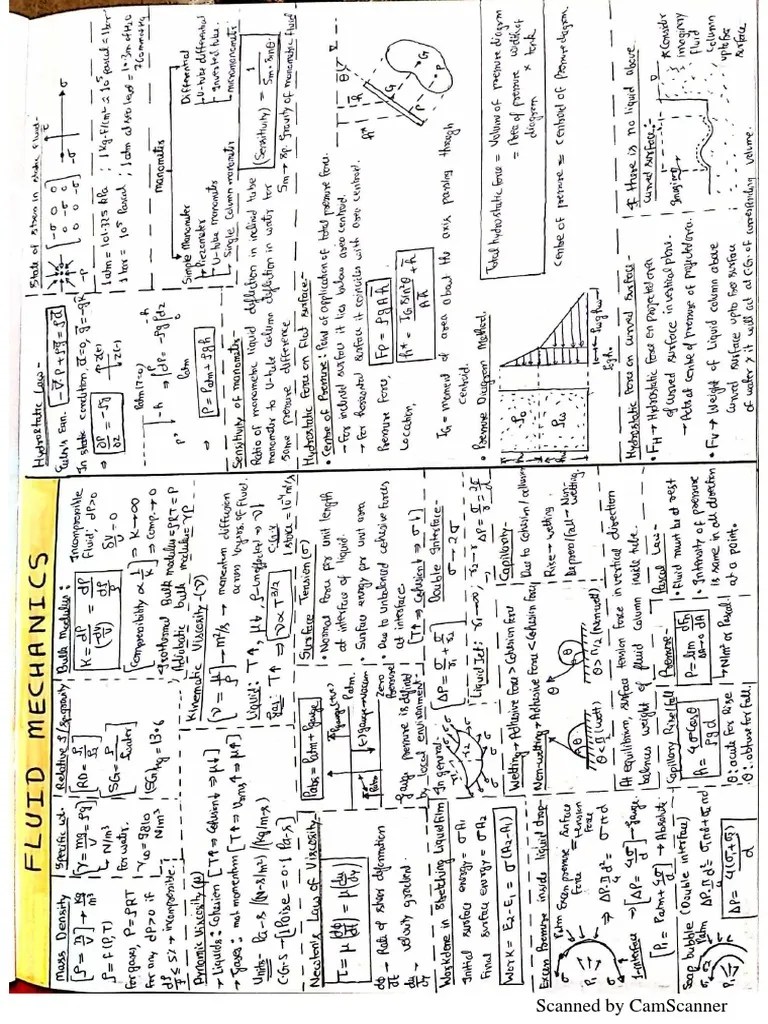 FLUID MECHANICS
Mass Density
ρ = m/V → kg/m³
ρ = f(P,T)
for gases, P = ρRT
for any dP>0 if
dρ/ρ ≤ 5% → incompressible.
Specific wt.
γ = mg/V = ρg
↳ N/m³
for water,
γw = 9810 N/m³
Relative ρ/Sp. gravity
RD = ρ/ρ
SG = ρ/ρwater
(SG)Hg = 13.6
Bulk Modulus:
K = dP/(-dV/V) = dP/(dρ/ρ)
Incompressible
fluid, dP>0
δV/V = 0
Compressibility ∝ 1/K ⇒ K→∞
⇒ Comp.→0
Isothermal Bulk modulus = ρRT = P
Adiabatic bulk modulus = γP
Dynamic Viscosity (μ)
→ Liquids: Cohesion [T↑ ⇒ Cohesion↓ ⇒ μ↓]
→ Gases: mol. momentum [T↑ ⇒ Vrms↑ ⇒ μ↑]
Units - Pa-s (N-s/m²) (kg/m-s)
C.G.S → 1 Poise = 0.1 Pa-s
Kinematic Viscosity - (ν)
ν = μ/ρ → m²/s → momentum diffusion
across layers of fluid.
Liquid: T↑, μ↓, ρ-
Gas: T↑ ⇒ ν ∝ T^3/2
C.G.S
1 stoke = 10⁻⁴ m²/s
Newton's Law of Viscosity-
τ = μ(dθ/dt) = μ(du/dy)
dθ/dt → Rate of shear deformation
du/dy → velocity gradient.
Pabs = Patm + Pgauge
Pgauge (+ve)
Patm.
(-)Pgauge = vacuum
Pabs
Zero
Pressure
Gauge pressure is defined
by local environment
Surface Tension (σ)
• Normal force per unit length
at interface of liquid.
• Surface energy per unit area
• Due to unbalanced cohesive forces
at interface. [T↑ ⇒ Cohesion↓ ⇒ σ↓]
Workdone in Stretching Liquid film
Initial surface energy = σA₁
Final surface energy = σA₂
Work = E₂-E₁ = σ(A₂-A₁)
In general-
ΔP = σ/r₁ + σ/r₂
Double Interface-
σ → 2σ
Liquid Jet:
Excess Pressure inside liquid drop-
Patm
Excess pressure force = Surface tension force
⇒ ΔP·π/4 d² = σπd
1-Interface → ΔP = 4σ/d → gauge
Pi = Patm + 4σ/d → Absolute
Wetting → Adhesive force > Cohesion force
Non-wetting → Adhesive force < Cohesion force
θ < π/2 (wet)
θ > π/2 (Non wet)
Capillarity-
Due to Cohesion/adhesion
Rise → wetting.
Depression/fall → Non-wetting.
At equilibrium, surface tension force in vertical direction
balances weight of fluid column inside tube.
Soap bubble (Double interface)
Patm
ΔP·π/4 d² = σ₁πd + σ₂πd
ΔP = 4(σ₁+σ₂)/d
Capillary Rise/fall
h = 4σcosθ/ρgd
θ: acute for rise
θ: obtuse for fall.
Pressure
P = lim ΔA→0 dFn/dA
↳ N/m² or Pascal
Pascal Law-
• Fluid must be at rest
• Intensity of pressure
is same in all direction
at a point.
Hydrostatic Law-
Euler's Eqn. -∇P + ρg = ρa
In static condition, a=0, g=-gk
⇒ ∂P/∂z = -ρg
z(↑)
z(↓)
Patm (z=0)
-h
⇒ ∫dP = -∫ρg dz
Patm
⇒ P = Patm + ρgh
State of stress in static fluid-
-σ 0 0
0 -σ 0
0 0 -σ
1 atm = 101.325 kPa ; 1 kg-f/cm² ≈ 10⁵ pascal = 1 bar
1 bar = 10⁵ Pascal ; 1 atm at sea level = 10.3m of H₂O
760mm Hg
Manometers
Simple Manometer
→ Piezometer
→ U-tube manometer
→ Single column manometer
Differential
→ U-tube differential
→ Inverted tube.
micromanometer
Sensitivity of manometer-
Ratio of manometric liquid deflection in inclined tube
manometer to U-tube column deflection in water for
same pressure difference
(Sensitivity) = 1/(Sm·sinθ)
Sm → sp. gravity of manometric fluid
Hydrostatic force on Flat surface-
• Centre of Pressure: Point of application of total pressure force.
- For inclined surface it lies below area centroid.
→ For horizontal surface it coincides with area centroid.
Pressure Force, Fp = ρgAh̄
Location, h* = IG sin²θ/Ah̄ + h̄
IG = moment of area about the axis passing through
centroid.
• Pressure Diagram Method.
Total hydrostatic force = Volume of pressure diagram
= Area of pressure diagram × width of tank
Centre of pressure = centroid of Pressure diagram.
Hydrostatic force on curved surface-
• FH → Hydrostatic force on projected area
of curved surface in vertical plane.
→ Acts at centre of pressure of projected area.
• Fv → Weight of liquid column above
curved surface upto free surface
of water & it will act at C.G. of corresponding volume.
If there is no liquid above
curved surface:-
Imaginary
*Consider
imaginary
fluid
column
upto free
surface
Scanned by CamScanner